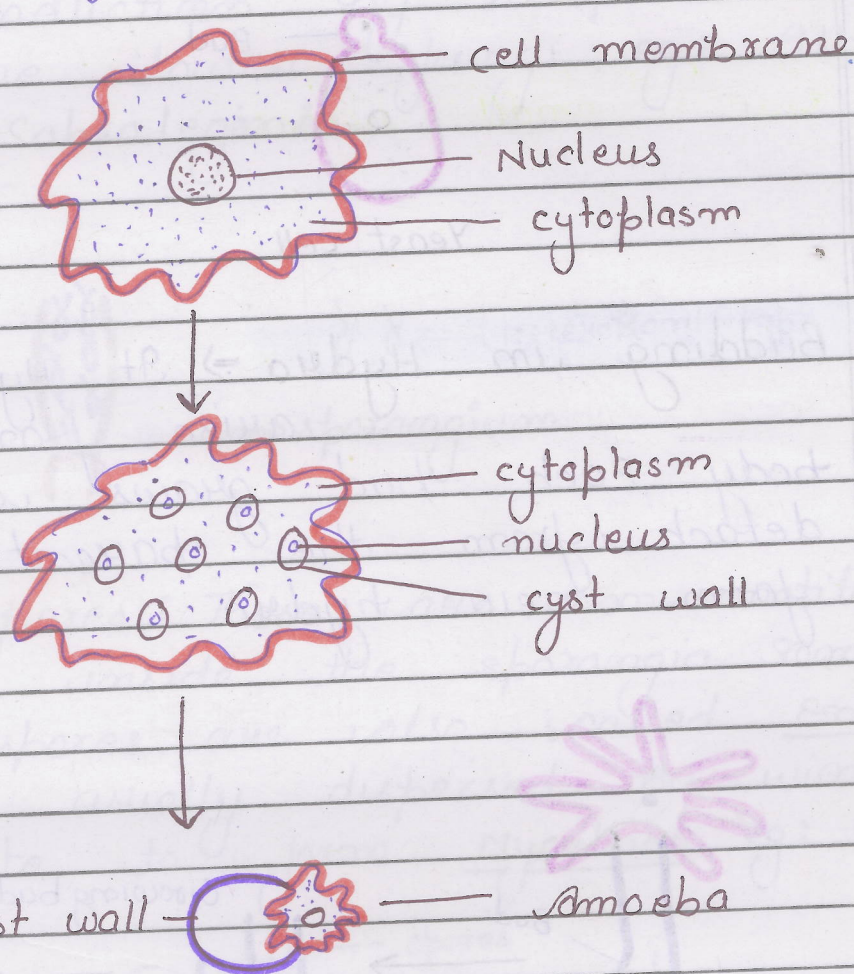 cell membrane
Nucleus
cytoplasm
cytoplasm
nucleus
cyst wall
wall
Amoeba